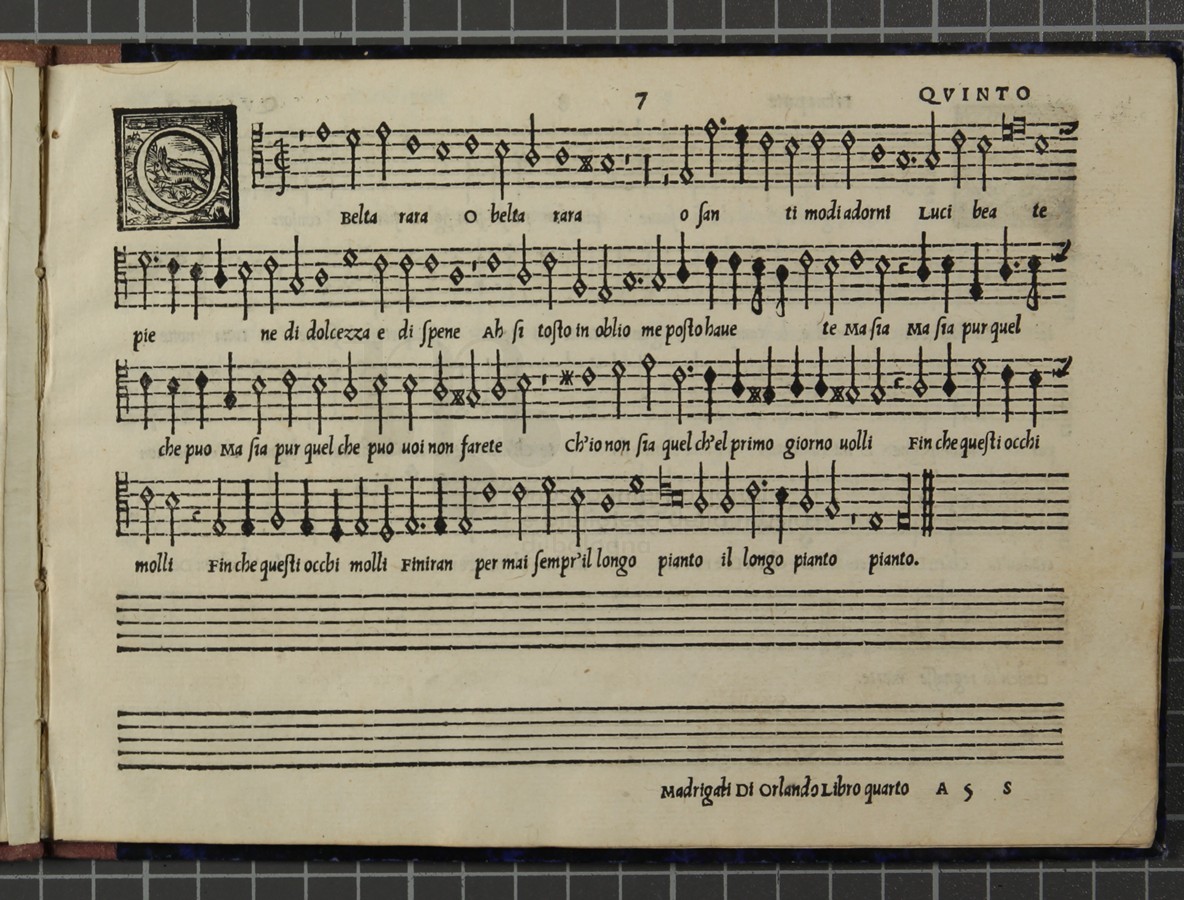 7 QVINTO
O Belta rara O belta rara o san ti modi adorni Luci bea te
pie ne di dolcezza e di spene Ah si tosto in oblio me posto haue te Ma sia Ma sia pur quel
che puo Ma sia pur quel che puo uoi non farete Ch'io non sia quel ch'el primo giorno uolli Fin che questi occhi
molli Fin che questi occhi molli Finiran per mai sempr'il longo pianto il longo pianto pianto.
Madrigali Di Orlando Libro quarto A 5 S